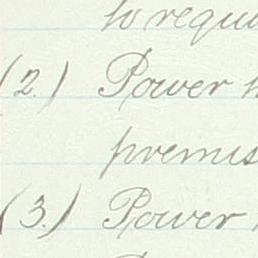 to requ
(2) Power
premis
(3.) Power